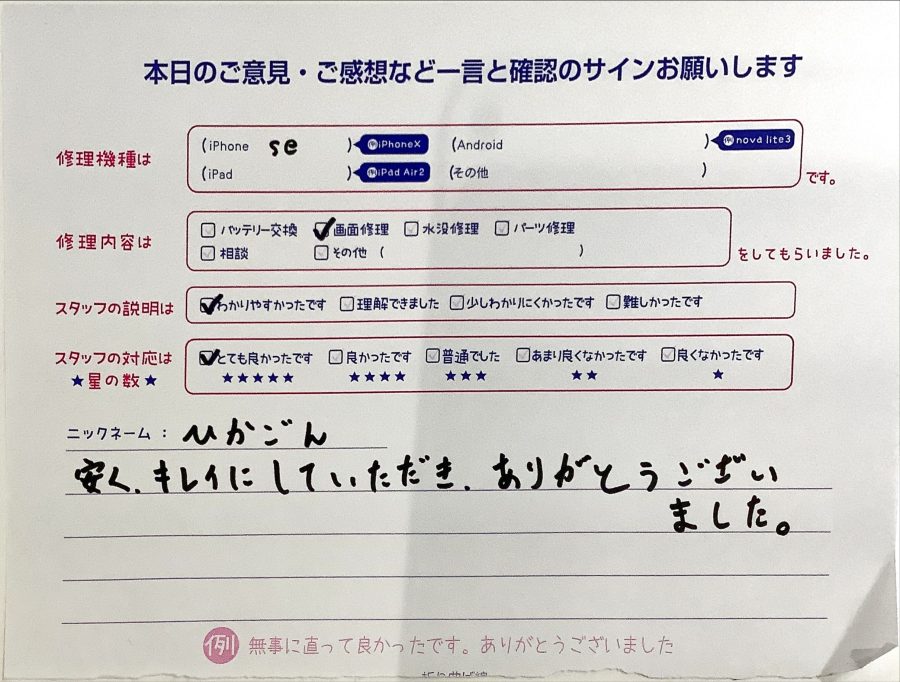 本日のご意見・ご感想など一言と確認のサインお願いします
修理機種は
(iPhone se ) 例iPhoneX (Android ) 例nova lite3
(iPad ) 例iPad Air2 (その他 ) です。
修理内容は
バッテリー交換 画面修理 水没修理 パーツ修理
相談 その他 ( ) をしてもらいました。
スタッフの説明は わかりやすかったです 理解できました 少しわかりにくかったです 難しかったです
スタッフの対応は とても良かったです 良かったです 普通でした あまり良くなかったです 良くなかったです
★星の数★ ★★★★★ ★★★★ ★★★ ★★ ★
ニックネーム: ひかごん
安く、キレイにしていただき、ありがとうござい
ました。
例 無事に直って良かったです。ありがとうございました